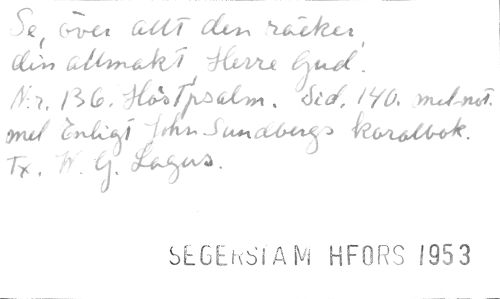 Se, över allt den räcker,
din allmakt, Herre Gud.
N:r. 136. Höstpsalm. Sid. 140. mel-not.
mel Enligt John Sundbergs koralbok.
Tx. W. G. Lagus.
SEGERSTAM HFORS 1953